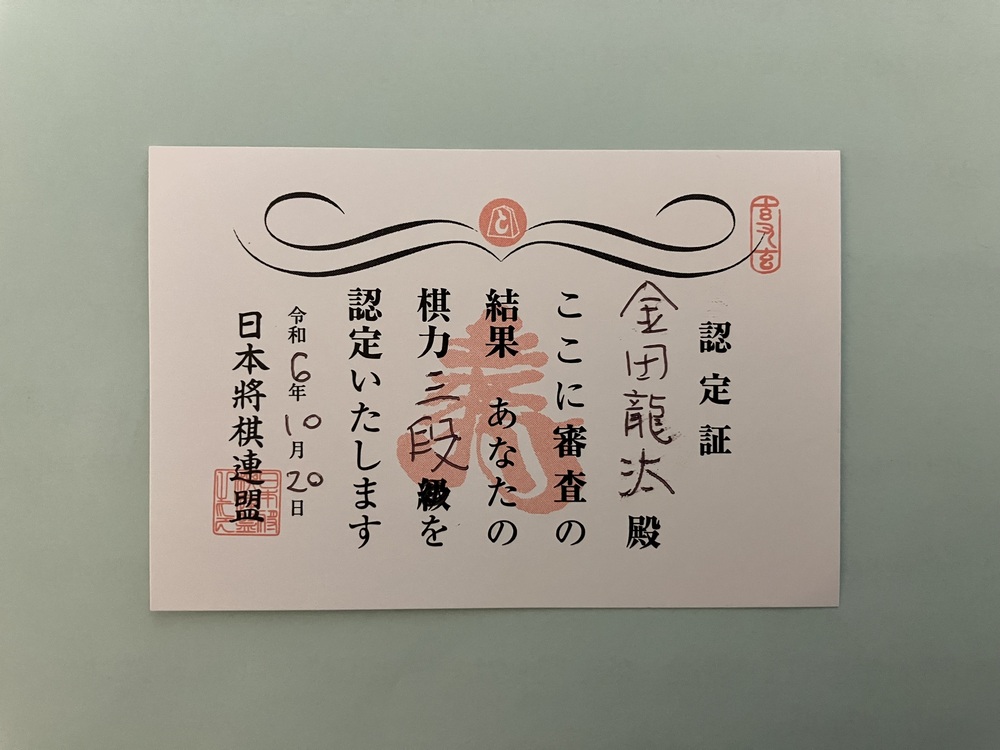 認定証
金田龍汰殿
ここに審査の
結果 あなたの
棋力三段級を
認定いたします
令和6年10月20日
日本將棋連盟
と